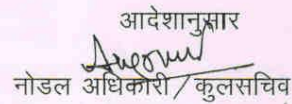 आदेशानुसार
नोडल अधिकारी/कुलसचिव